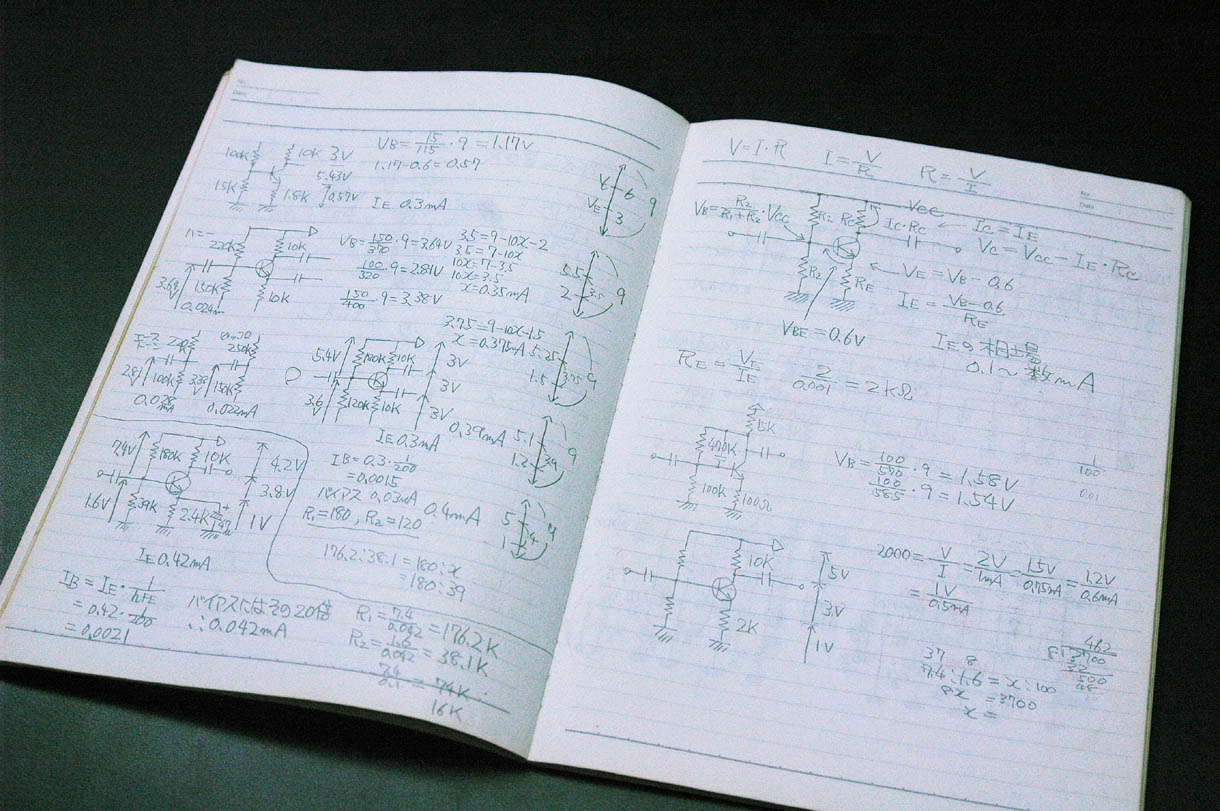 No.
Date
100K 10K 3V
5.43V
15K 1.8K 0.57V
IE 0.3mA
VB = 15/115 · 9 = 1.17V
1.17-0.6 = 0.57
6
VE 3 9
220K 10K
150K
10K
3.64V
0.024mA
VB = 150/370 · 9 = 3.64V
100/320 · 9 = 2.81V
150/400 · 9 = 3.38V
3.5 = 9-10x-2
3.5 = 7-10x
10x = 7-3.5
10x = 3.5
x = 0.35mA
5.5
2 3.5 9
220K 250K
2.81V 100K 3.38V 150K
0.028mA 0.022mA
3.75 = 9-10x-1.5
x = 0.375mA
5.4V 180K 10K 3V
3V
3.6V 120K 10K 3V
IE 0.3mA
0.39mA
5.25
1.5 3.75 9
5.1
1.2 3.9 9
IB = 0.3 · 1/200
= 0.0015
バイアス 0.03mA
R1 = 180, R2 = 120
0.4mA
5
1 4 9
7.4V 180K 10K 4.2V
3.8V
1.6V 39K 2.4K 47 1V
IE 0.42mA
176.2:38.1 = 180:x
= 180:39
IB = IE · 1/hFE
= 0.42 · 1/200
= 0.0021
バイアスにはその20倍
∴ 0.042mA
R1 = 7.4/0.042 = 176.2K
R2 = 1.6/0.042 = 38.1K
7.4/0.1 = 74K
16K
V = I · R I = V/R R = V/I
No.
Date
VB = R2/R1+R2 · Vcc
Vcc
R2 Rc Ic·Rc
Ic = IE
Vc = Vcc - IE · Rc
R2 RE
VE = VB - 0.6
IE = VB-0.6/RE
VBE = 0.6V
IEの相場
0.1~数mA
RE = VE/IE 2/0.001 = 2kΩ
15K
470K
1K
100K 100Ω
VB = 100/570 · 9 = 1.58V
100/585 · 9 = 1.54V
1/100
0.01
10K
5V
3V
2K 1V
2000 = V/I = 2V/1mA = 1.5V/0.75mA = 1.2V/0.6mA
= 1V/0.5mA
37 8
7.4:1.6 = x:100
8x = 3700
x =
462
8 3700
32
500
48